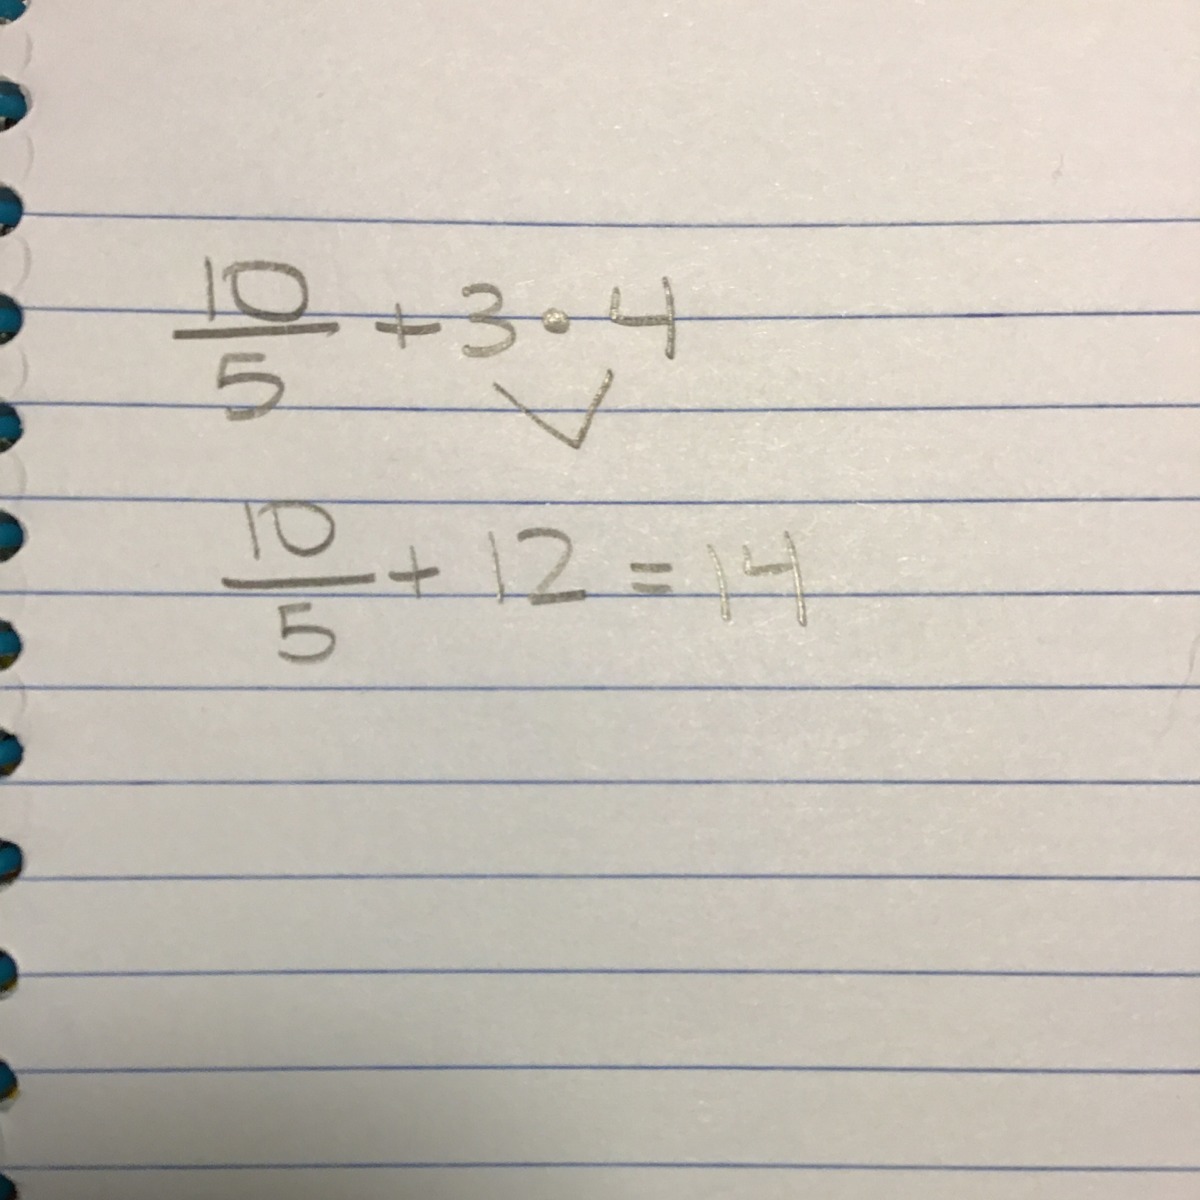 10/5 + 3 • 4
10/5 + 12 = 14